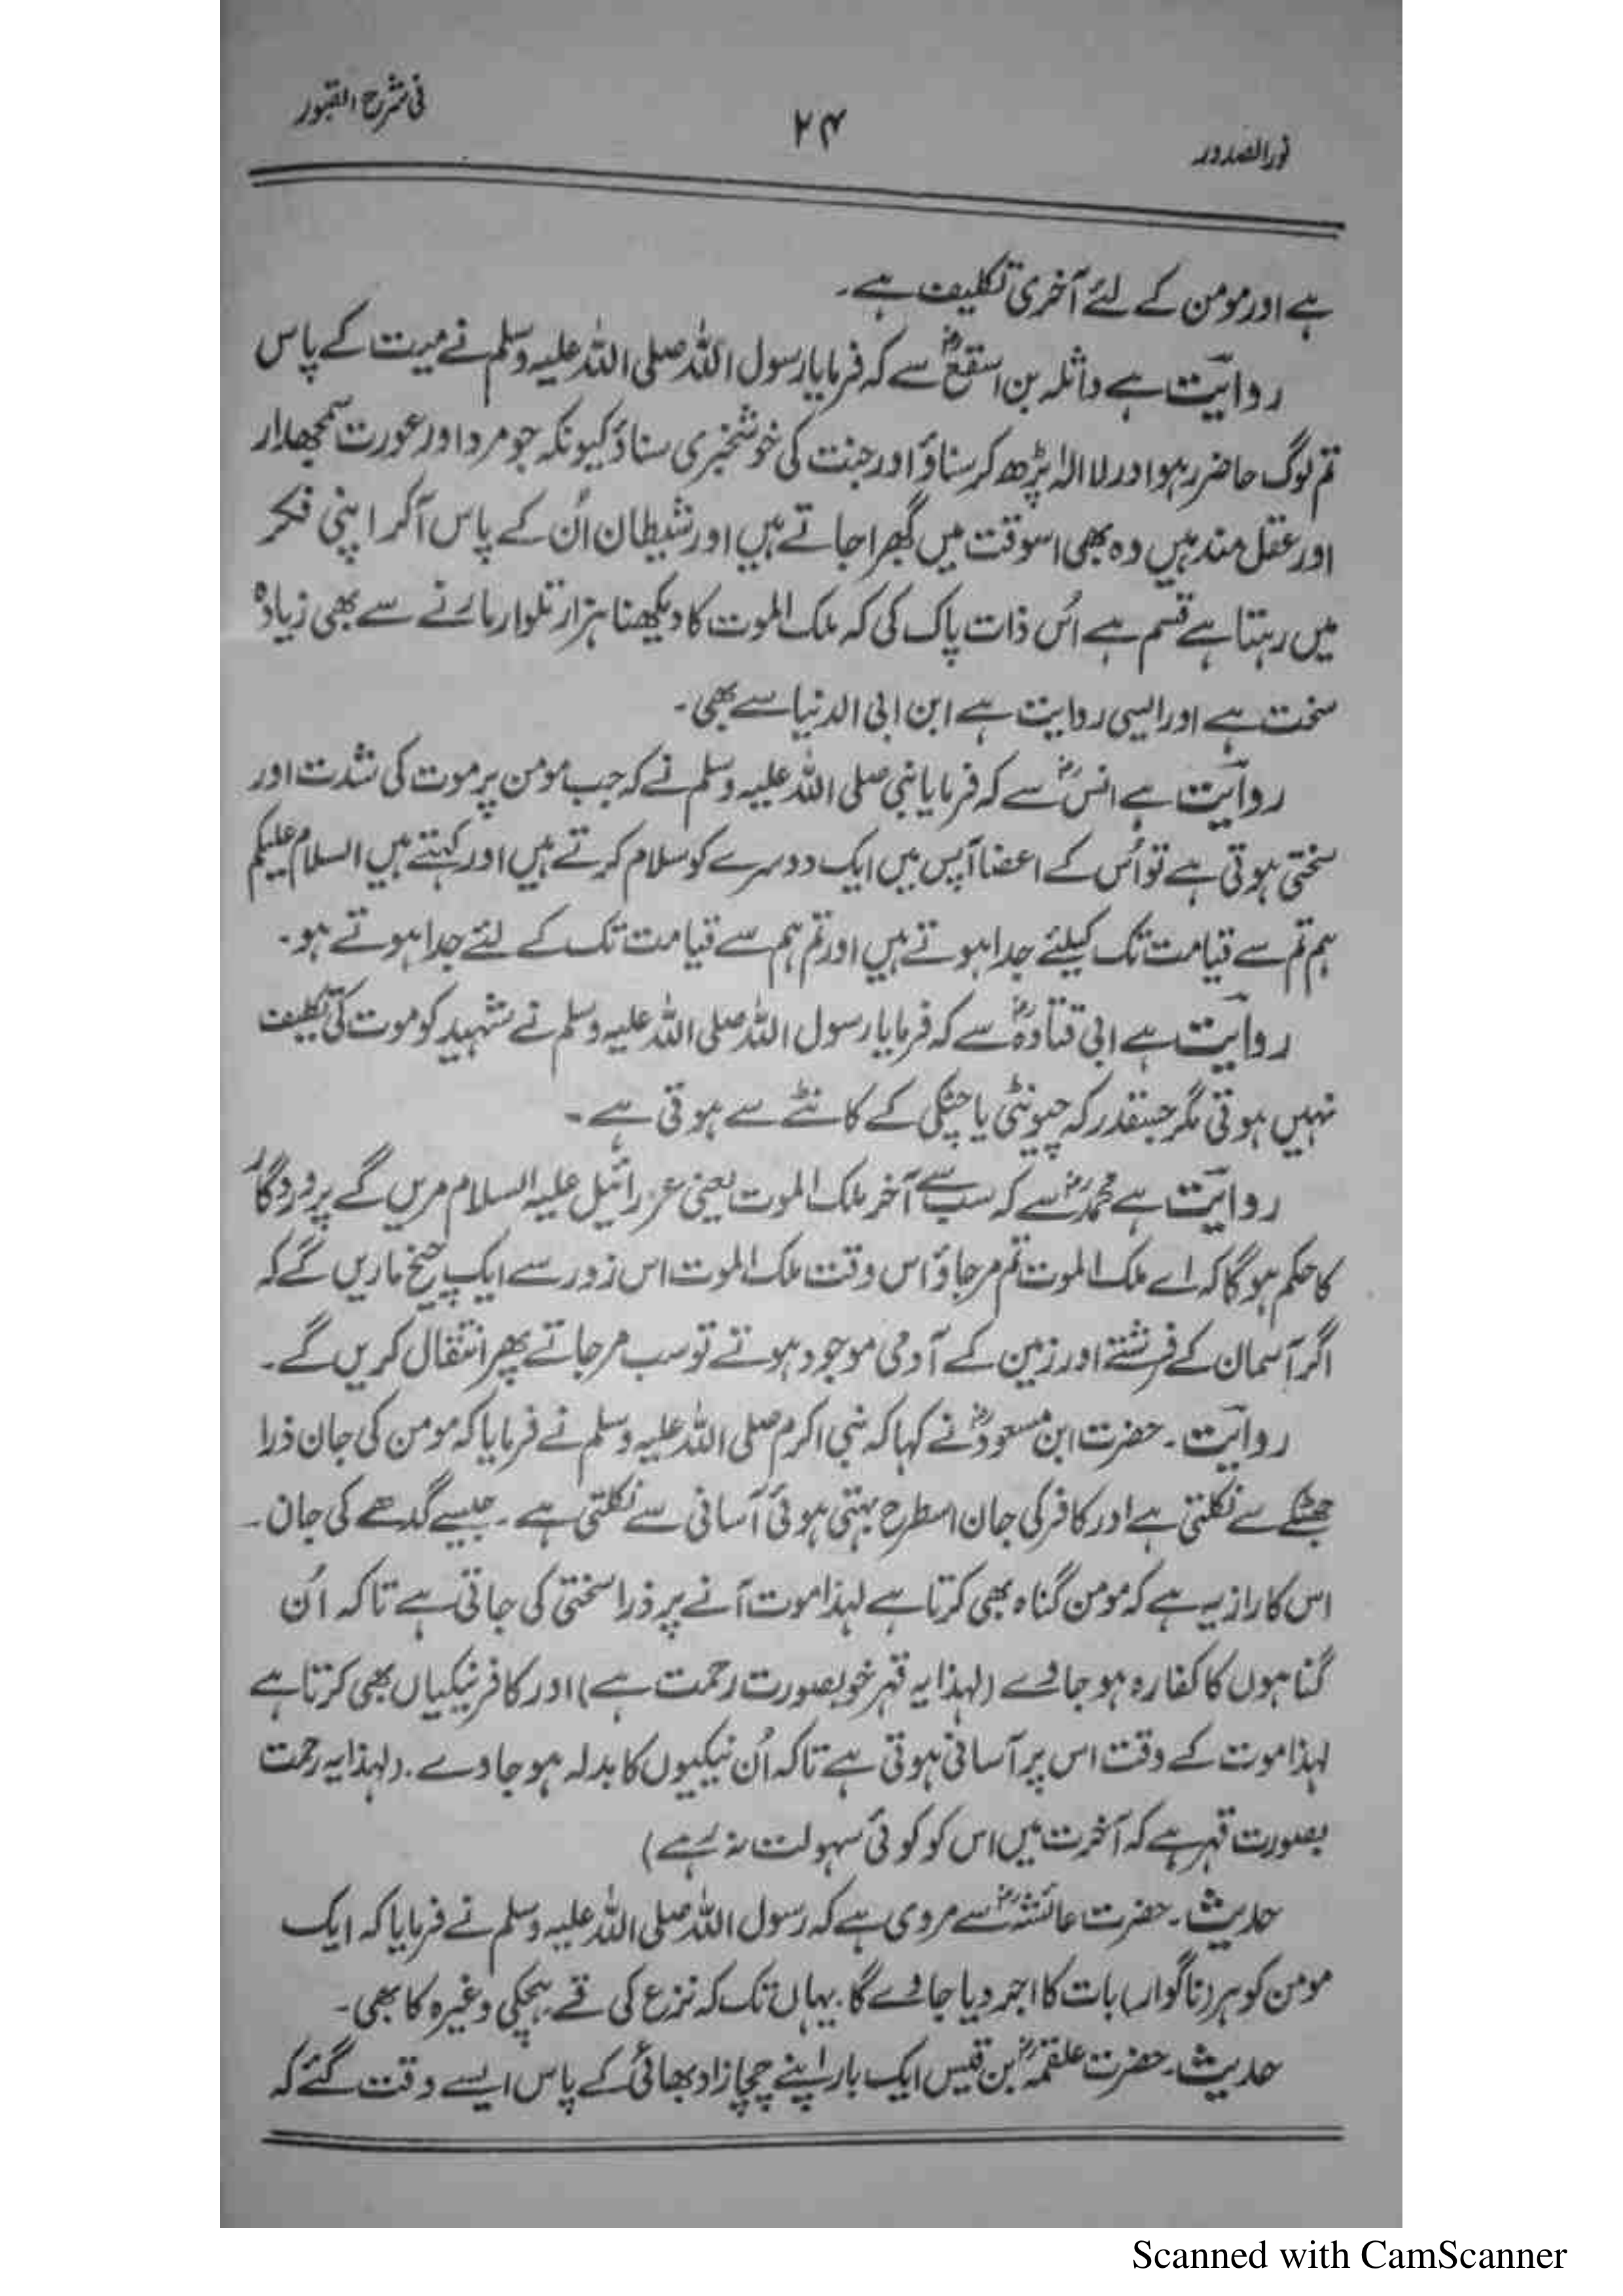 نورالصدور ۲۴ فی شرح القبور
ہے اور مومن کے لئے آخری تکلیف ہے۔
روایت ہے واثلہ بن اسقعؓ سے کہ فرمایا رسول اللہ صلی اللہ علیہ وسلم نے میت کے پاس
تم لوگ حاضر رہو اور لا الہٰ پڑھ کر سناؤ اور جنت کی خوشخبری سناؤ کیونکہ جو مرد اور عورت سمجھدار
اور عقل مند ہیں وہ بھی اسوقت میں گھبرا جاتے ہیں اور شیطان اُن کے پاس آکر اپنی فکر
میں رہتا ہے قسم ہے اُس ذات پاک کی کہ ملک الموت کا دیکھنا ہزار تلوار مارنے سے بھی زیادہ
سخت ہے اور ایسی روایت ہے ابن ابی الدنیا سے بھی۔
روایت ہے انسؓ سے کہ فرمایا نبی صلی اللہ علیہ وسلم نے کہ جب مومن پر موت کی شدت اور
سختی ہوتی ہے تو اُس کے اعضا آپس میں ایک دوسرے کو سلام کرتے ہیں اور کہتے ہیں السلام علیکم
ہم تم سے قیامت تک کیلئے جدا ہوتے ہیں اور تم ہم سے قیامت تک کے لئے جدا ہوتے ہو۔
روایت ہے ابی قتادہؓ سے کہ فرمایا رسول اللہ صلی اللہ علیہ وسلم نے شہید کو موت کی تکلیف
نہیں ہوتی مگر جسقدر کہ چیونٹی یا چٹکی کے کانٹے سے ہوتی ہے۔
روایت ہے محمدؓ سے کہ سب سے آخر ملک الموت یعنی عزرائیل علیہ السلام مریں گے پروردگار
کا حکم ہوگا کہ اے ملک الموت تم مر جاؤ اس وقت ملک الموت اس زور سے ایک چیخ ماریں گے کہ
اگر آسمان کے فرشتے اور زمین کے آدمی موجود ہوتے تو سب مر جاتے پھر انتقال کریں گے۔
روایت۔ حضرت ابن مسعودؓ نے کہا کہ نبی اکرم صلی اللہ علیہ وسلم نے فرمایا کہ مومن کی جان ذرا
جھٹکے سے نکلتی ہے اور کافر کی جان اسطرح بہتی ہوئی آسانی سے نکلتی ہے۔ جیسے گدھے کی جان۔
اس کا راز یہ ہے کہ مومن گناہ بھی کرتا ہے لہذا موت آنے پر ذرا سختی کی جاتی ہے تاکہ اُن
گناہوں کا کفارہ ہو جاوے (لہذا یہ قہر خوبصورت رحمت ہے) اور کافر نیکیاں بھی کرتا ہے
لہذا موت کے وقت اس پر آسانی ہوتی ہے تاکہ اُن نیکیوں کا بدلہ ہو جاوے۔ (لہذا یہ رحمت
بصورت قہر ہے کہ آخرت میں اس کو کوئی سہولت نہ رہے)
حدیث۔ حضرت عائشہؓ سے مروی ہے کہ رسول اللہ صلی اللہ علیہ وسلم نے فرمایا کہ ایک
مومن کو ہر (ناگوار) بات کا اجر دیا جاوے گا۔ یہاں تک کہ نزع کی قے ہچکی وغیرہ کا بھی۔
حدیث۔ حضرت علقمہؓ بن قیس ایک بار اپنے چچا زاد بھائی کے پاس ایسے وقت گئے کہ
Scanned with CamScanner